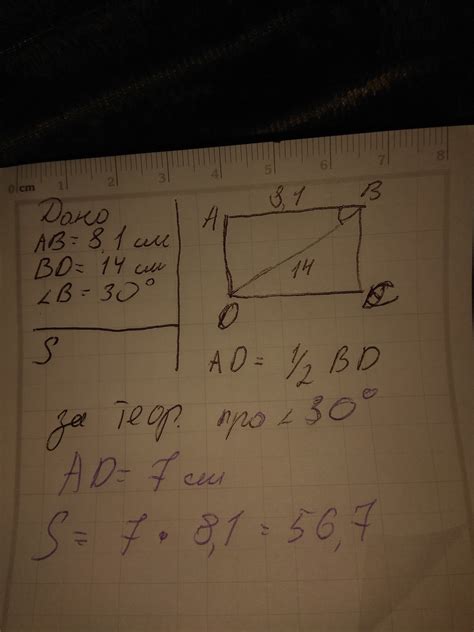 0 cm 1 2 3 4 5 6 7 8
Дано
AB = 8,1 см
BD = 14 см
∠B = 30°
S
8,1
A B
14
D C
AD = 1/2 BD
за теор. про ∠30°
AD = 7 см
S = 7 · 8,1 = 56,7